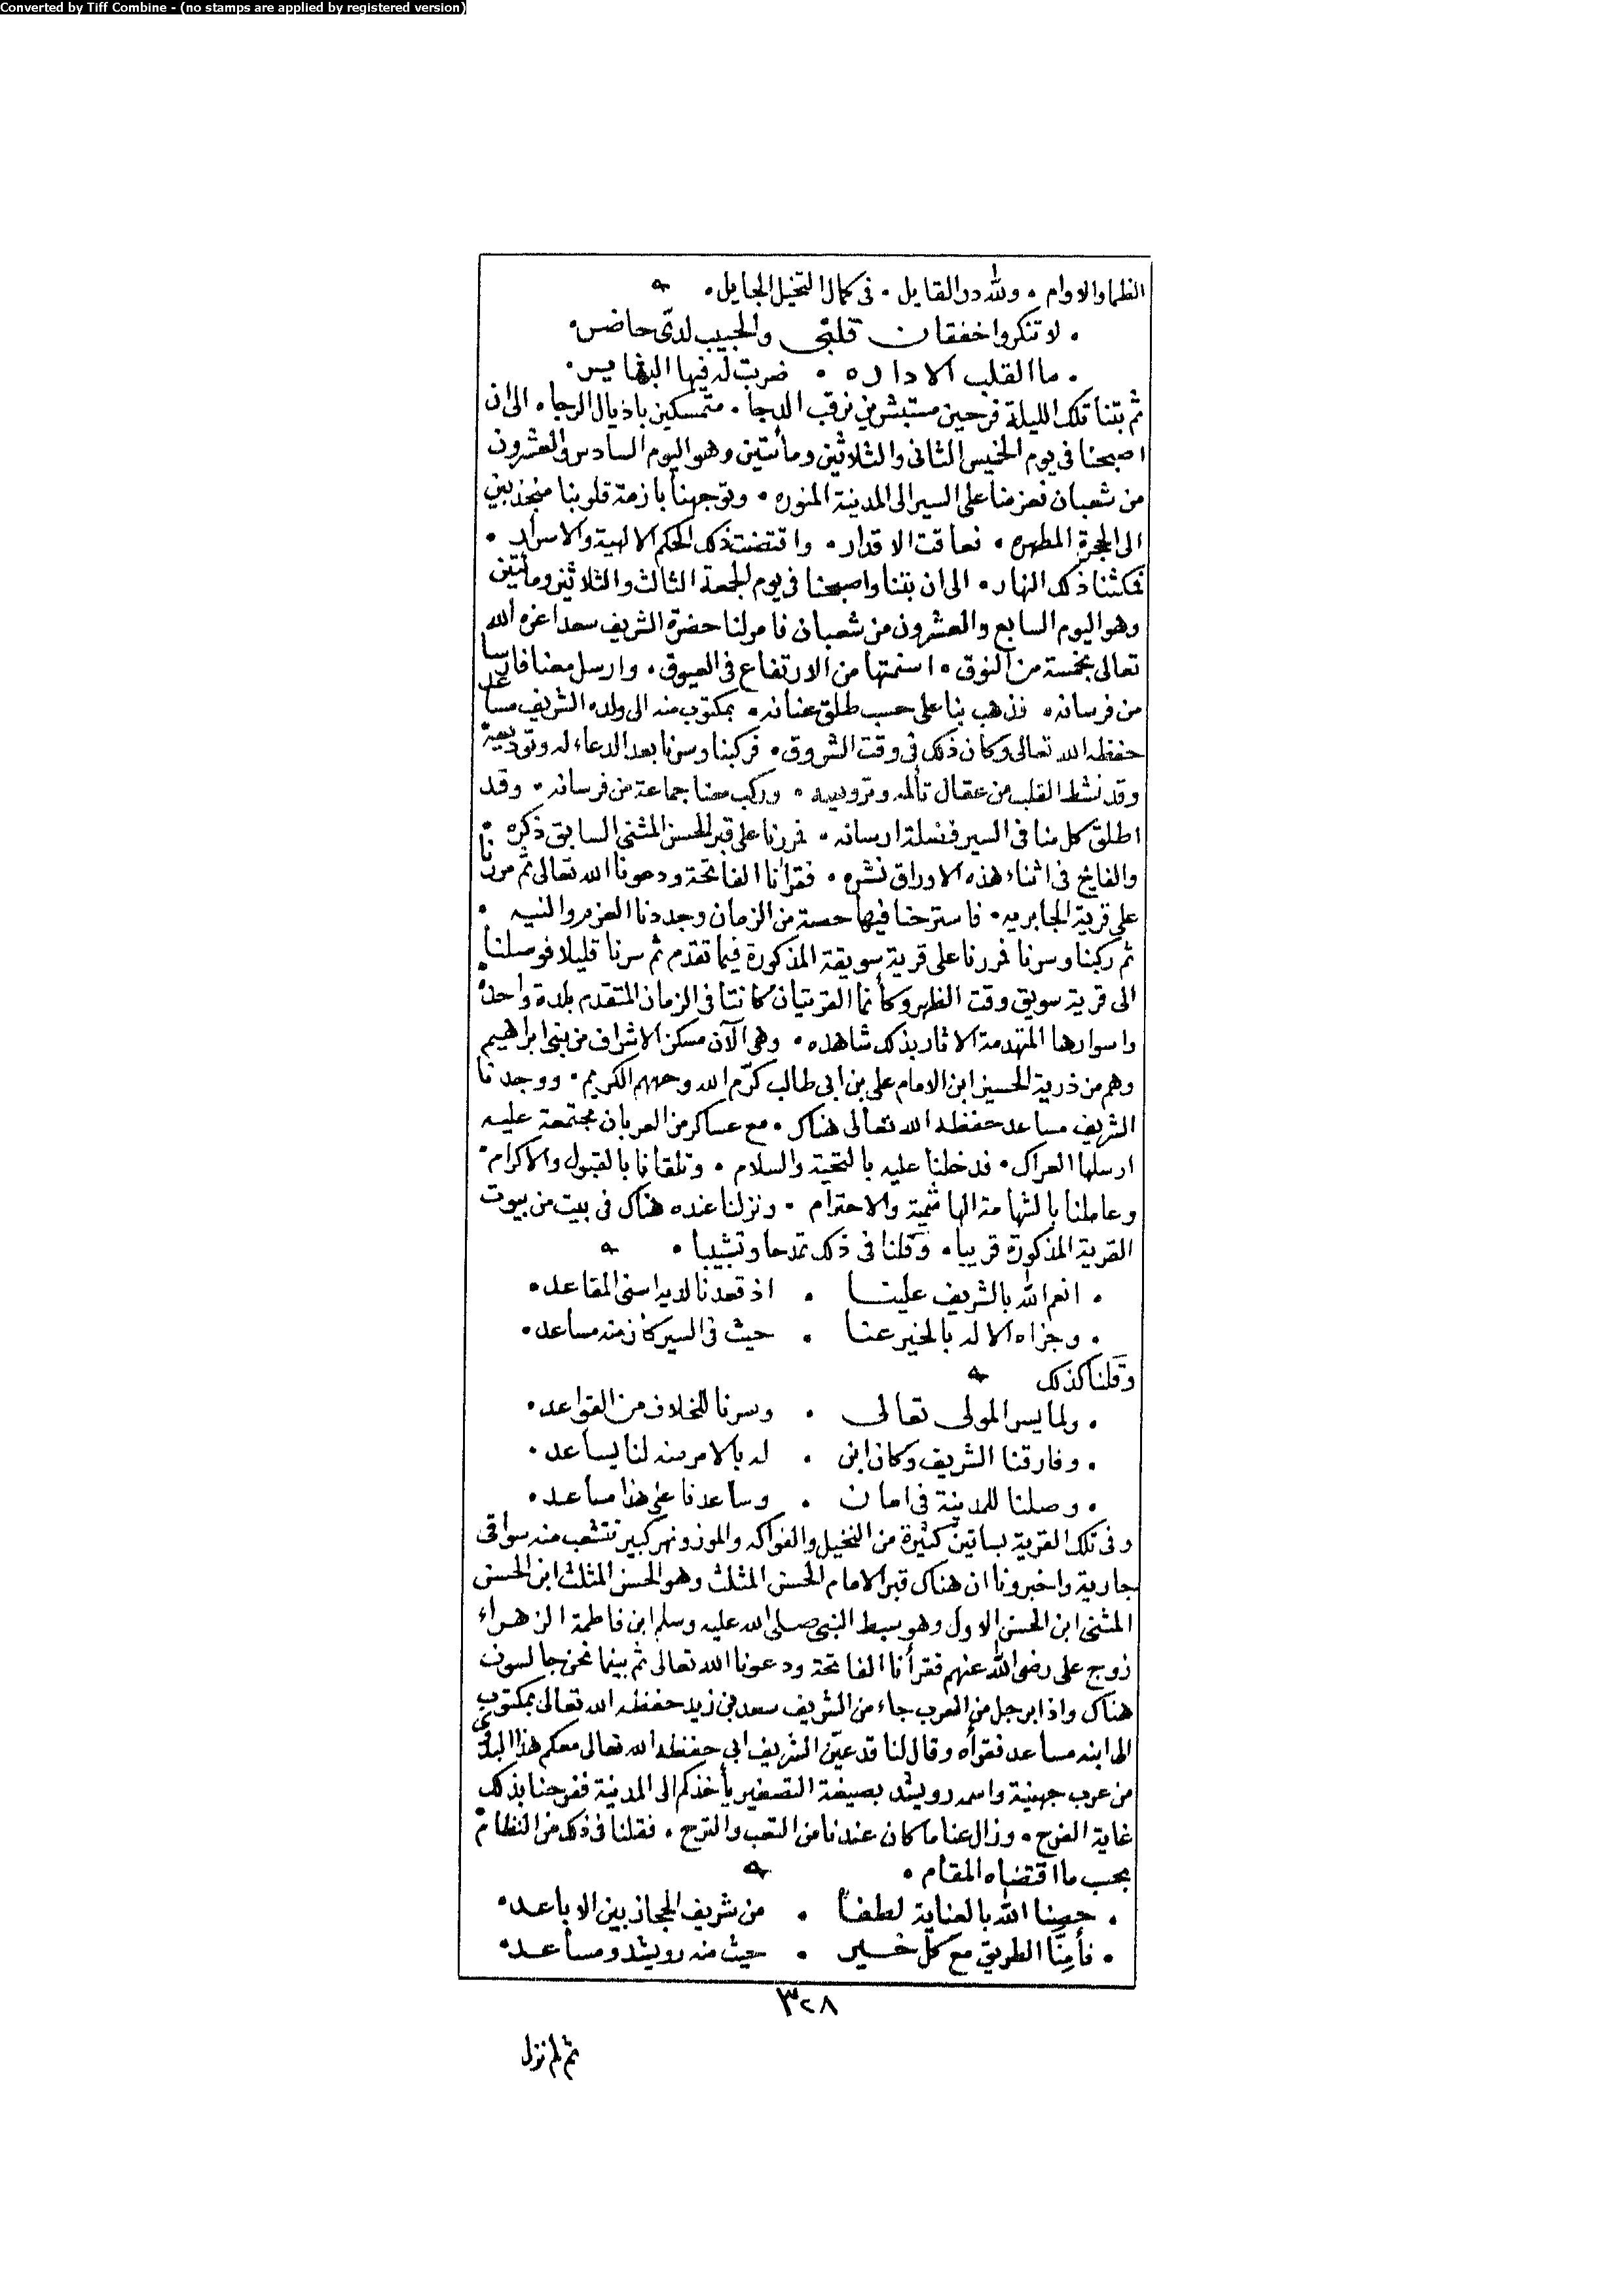 Converted by Tiff Combine - (no stamps are applied by registered version)
الظما والاوام • ولله در القايل • فى كمال التخيل الجايل •
• لا تنكروا خفقان قلبى والحبيب لدى حاضر •
• ما القلب الا داره • ضربت له فيها البشاير •
ثم بتنا تلك الليلة فرحين مستبشرين نرقب الدجا • متمسكين باذيال الرجا • الى ان
اصبحنا فى يوم الخميس الثانى والثلاثين ومأتين وهو اليوم السادس والعشرون
من شعبان فعزمنا على السير الى المدينة المنوره • وتوجهنا بازمة قلوبنا منجذبين
الى الحجرة المطهره • فعاقت الاقدار • واقتضت ذلك الحكم الالهية والاسرار •
فمكثنا ذلك النهار • الى ان بتنا واصبحنا فى يوم الجمعة الثالث والثلاثين ومأتين
وهو اليوم السابع والعشرون من شعبان فامر لنا حضرة الشريف سعد اعزه الله
تعالى بخمسة من النوق • اسنمتها من الارتفاع فى العيوق • وارسل معنا فارسا
من فرسانه • نذهب بنا على حسب طلق عنانه • بمكتوب منه الى ولده الشريف مساعد
حفظه الله تعالى وكان ذلك فى وقت الشروق • فركبنا وسرنا بعد الدعاء له وتوديعه
وقد نشط القلب من عقال تألمه وترويعه • وركب معنا جماعة من فرسانه • وقد
اطلق كل منا فى السير فضلة ارسانه • فمررنا على قبر الحسن المثنى السابق ذكره •
والفايح فى اثناء هذه الاوراق نشره • فقرأنا الفاتحة ودعونا الله تعالى ثم مررنا
على قرية الجابريه • فاسترحنا فيها حصة من الزمان وجددنا العزم والنيه •
ثم ركبنا وسرنا فمررنا على قرية سويقة المذكورة فيما تقدم ثم سرنا قليلا فوصلنا
الى قرية سويق وقت الظهر وكأنما القريتان كانتا فى الزمان المتقدم بلدة واحدة
واسوارها المتهدمة الاثار بذلك شاهده • وهى الآن مسكن الاشراف من بنى ابراهيم
وهم من ذرية الحسين ابن الامام على بن ابى طالب كرّم الله وجههم الكريم • ووجدنا
الشريف مساعد حفظه الله تعالى هناك • مع عساكر من العربان مجتمعة عليه
ارسلها العراك • فدخلنا عليه بالتحية والسلام • وتلقانا بالقبول والاكرام •
وعاملنا بالشهامة الهاشمية والاحترام • ونزلنا عنده هناك فى بيت من بيوت
القرية المذكورة قريبا • وقلنا فى ذلك تمدحا وتشبيبا •
• انعم الله بالشريف علينا • اذ قعدنا لديه اسنى المقاعد •
• وجزاه الاله بالخير عنا • حيث فى السير كان منه مساعد •
وقلنا كذلك
• ولما يسر المولى تعالى • وسرنا للخلاف من القواعد •
• وفارقنا الشريف وكان ابن • له بالامر منه لنا يساعد •
• وصلنا للمدينة فى امان • وساعدنا على هذا مساعد •
وفى تلك القرية بساتين كثيرة من النخيل والفواكه والموز ونهر كبير تتشعب منه سواقى
جارية واخبرونا ان هناك قبر الامام الحسن المثلث وهو الحسن المثلث ابن الحسن
المثنى ابن الحسن الاول وهو سبط النبى صلى الله عليه وسلم ابن فاطمة الزهراء
زوج على رضى الله عنهم فقرأنا الفاتحة ودعونا الله تعالى ثم بينما نحن جالسون
هناك واذا برجل من العرب جاء من الشريف سعد بن زيد حفظه الله تعالى بمكتوب
الى ابنه مساعد فقرأه وقال لنا قد عيّن الشريف ابى حفظه الله تعالى معكم هذا البدوى
من عرب جهينة واسمه رويشد بصيغة التصغير يأخذكم الى المدينة ففرحنا بذلك
غاية الفرح • وزال عنا ما كان عندنا من التعب والترح • فقلنا فى ذلك من النظام •
بحسب ما اقتضاه المقام •
• حصنا الله بالعناية لطفا • من شريف الحجاز بين الاباعد •
• فأمِنّا الطريق مع كل خير • حيث منه رويشد ومساعد •
٣٢٨
ثم لم نزل